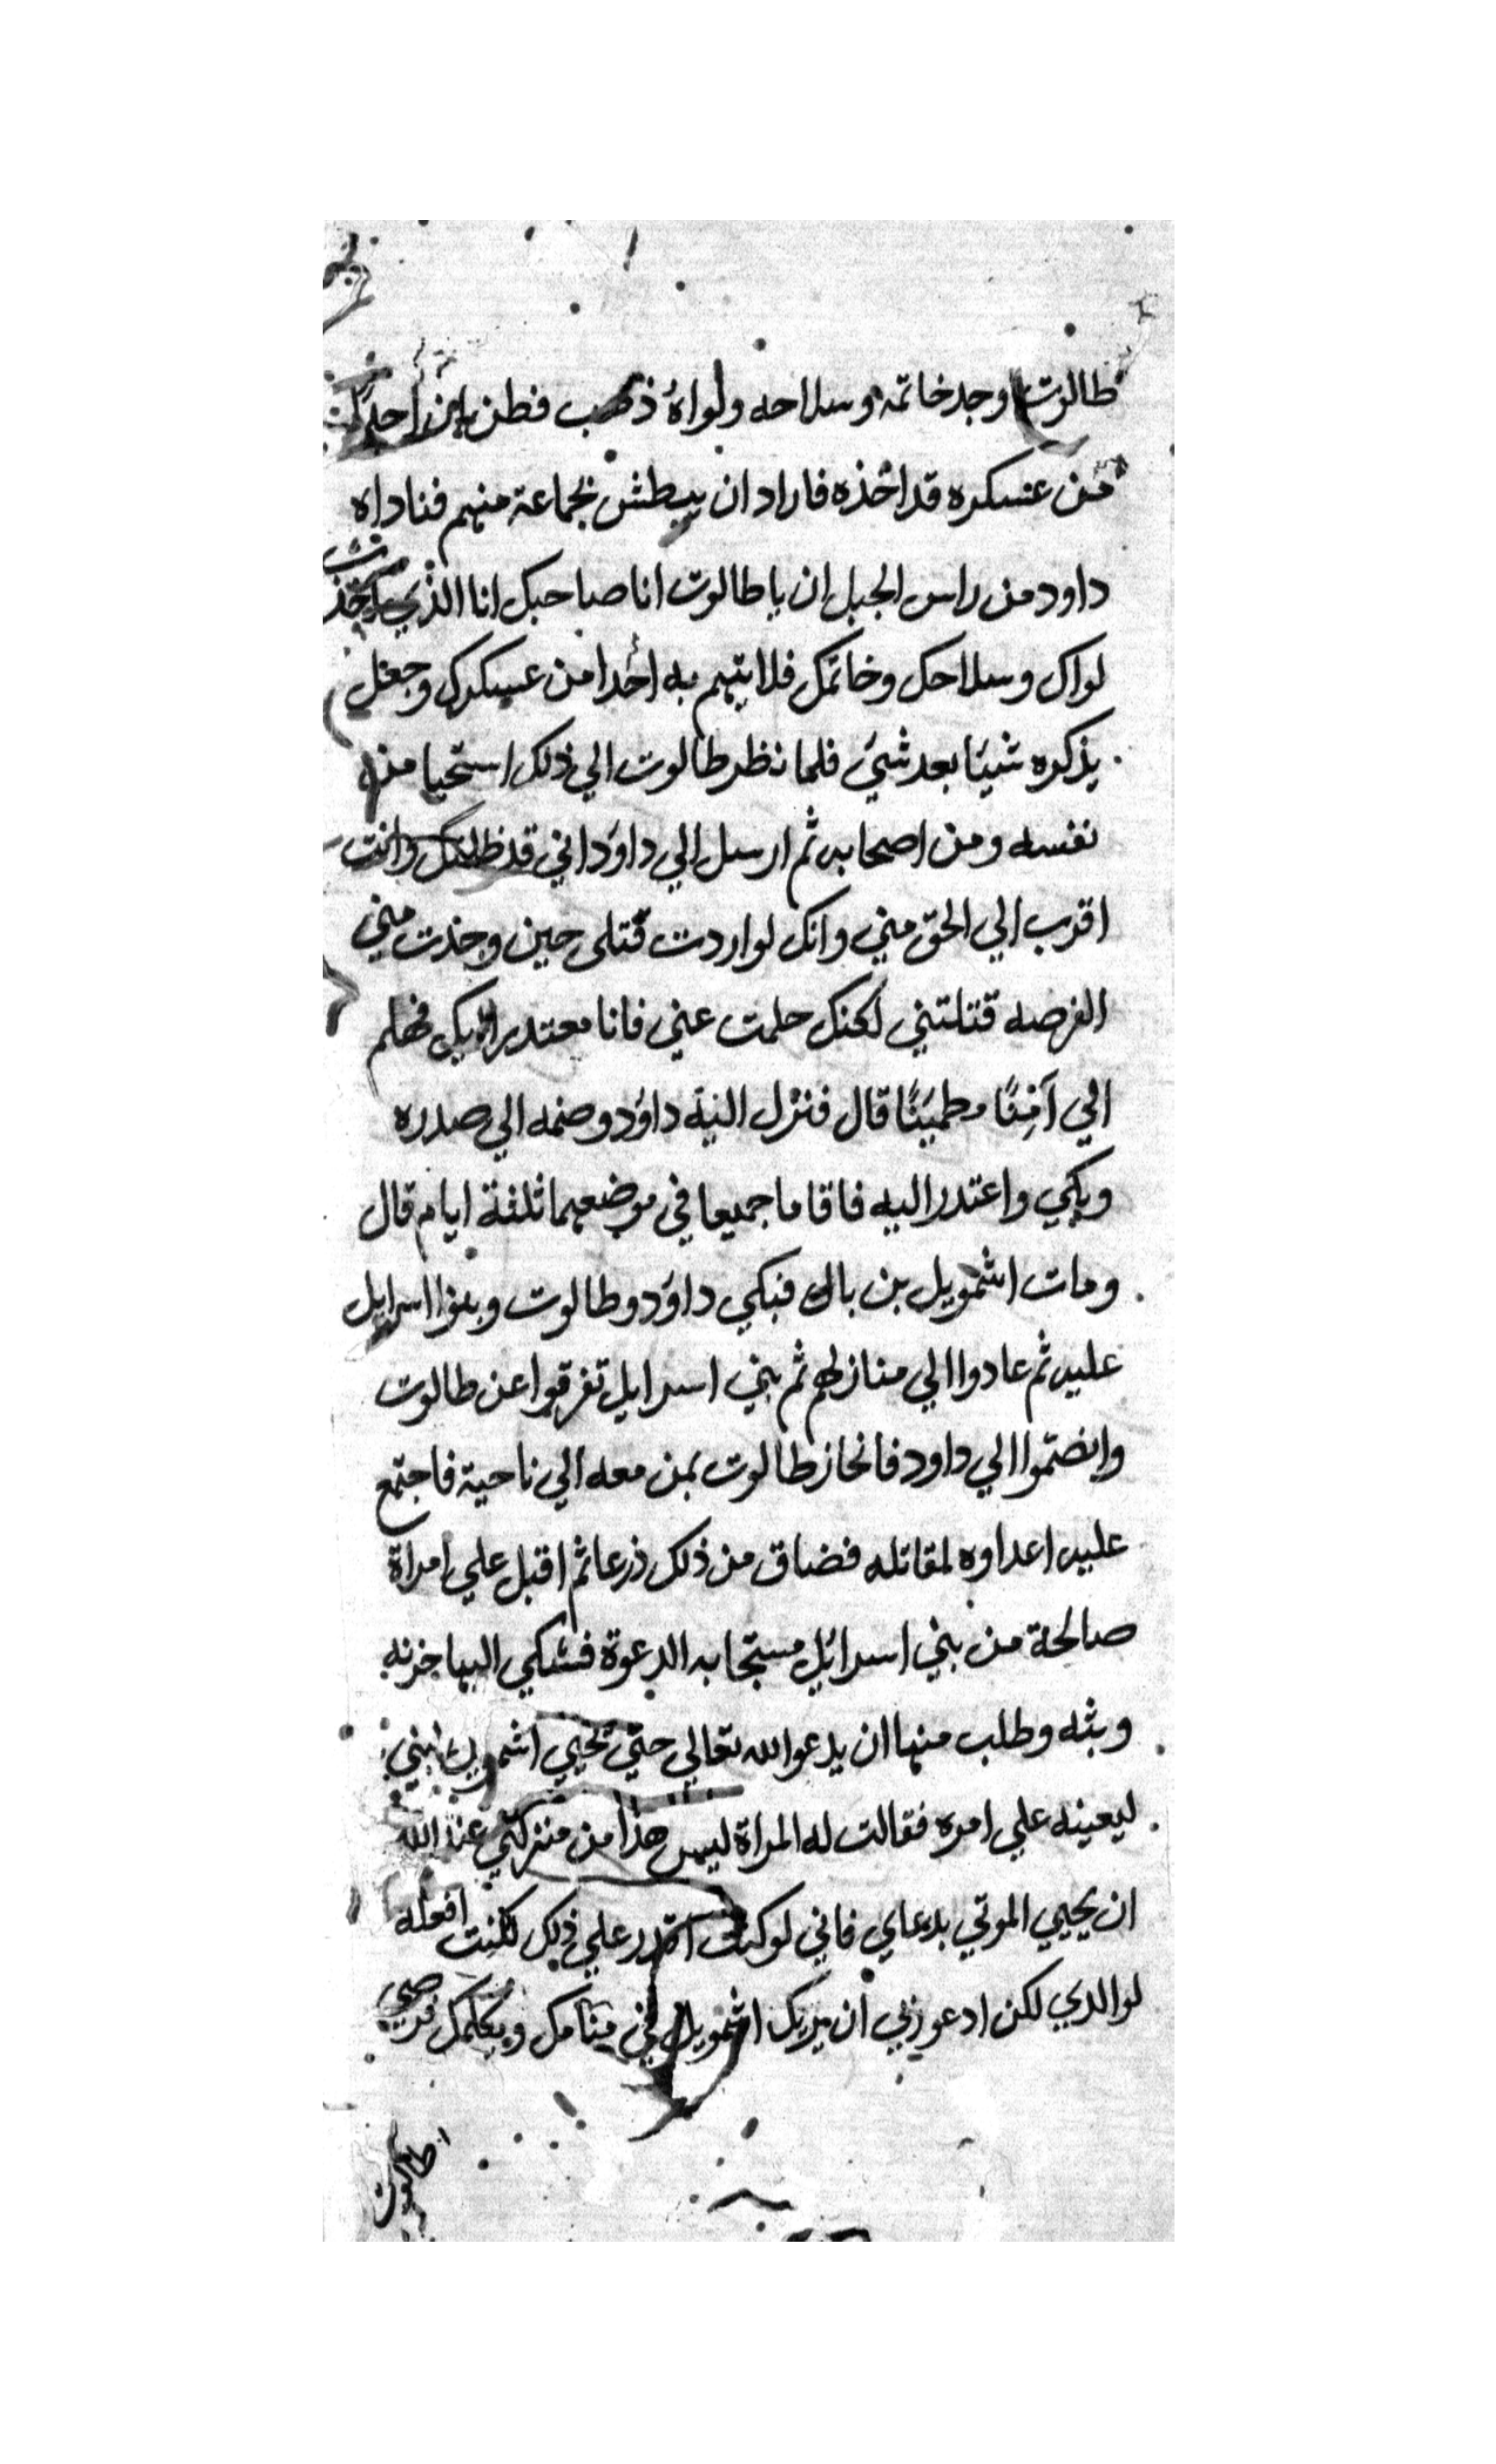 طالوت وجد خاتمه وسلاحه ولواهُ ذهب فظن بان احدًا
من عسكره قد اخذه فاراد ان يبطش بجماعة منهم فناداه
داود من راس الجبل ان يا طالوت انا صاحبك انا الذي اخذت
لواك وسلاحك وخاتمك فلا تتهم به احدا من عسكرك وجعل
يذكره شيئا بعد شيء فلما نظر طالوت الي ذلك استحيا من
نفسه ومن اصحابه ثم ارسل الي داود اني قد ظلمتك وانت
اقرب الي الحق مني وانك لو اردت قتلى حين وجدت مني
الفرصه قتلتني لكنك حلمت عني فانا معتدر اليك فهلم
الي آمِنًا مطمئنًا قال فنزل اليه داود وضمه الي صدره
وبكي واعتدر اليه فاقاما جميعا في موضعهما ثلثة ايام قال
ومات اشمويل بن بالى فبكي داود وطالوت وبنوا اسرايل
عليه ثم عادوا الي منازلهم ثم بني اسرايل تفرقوا عن طالوت
وانضموا الي داود فانحاز طالوت بمن معه الي ناحية فاجتمع
عليه اعداوه لمقاتله فضاق من ذلك ذرعا ثم اقبل علي امراة
صالحة من بني اسرائيل مستجابه الدعوة فشكي اليها حزنه
وبثه وطلب منها ان يدعوا الله تعالي حتي تحيي اشمويل
ليعينه علي امره فقالت له المراة ليس هذا من منزلتي عند الله
ان يحيي الموتي بدعاي فاني لو كنت اقدر علي ذلك لكنت افعله
لوالدي لكن ادعو ربي ان يريك اشمويل في منامك ويكلمك فرضي
طالوت